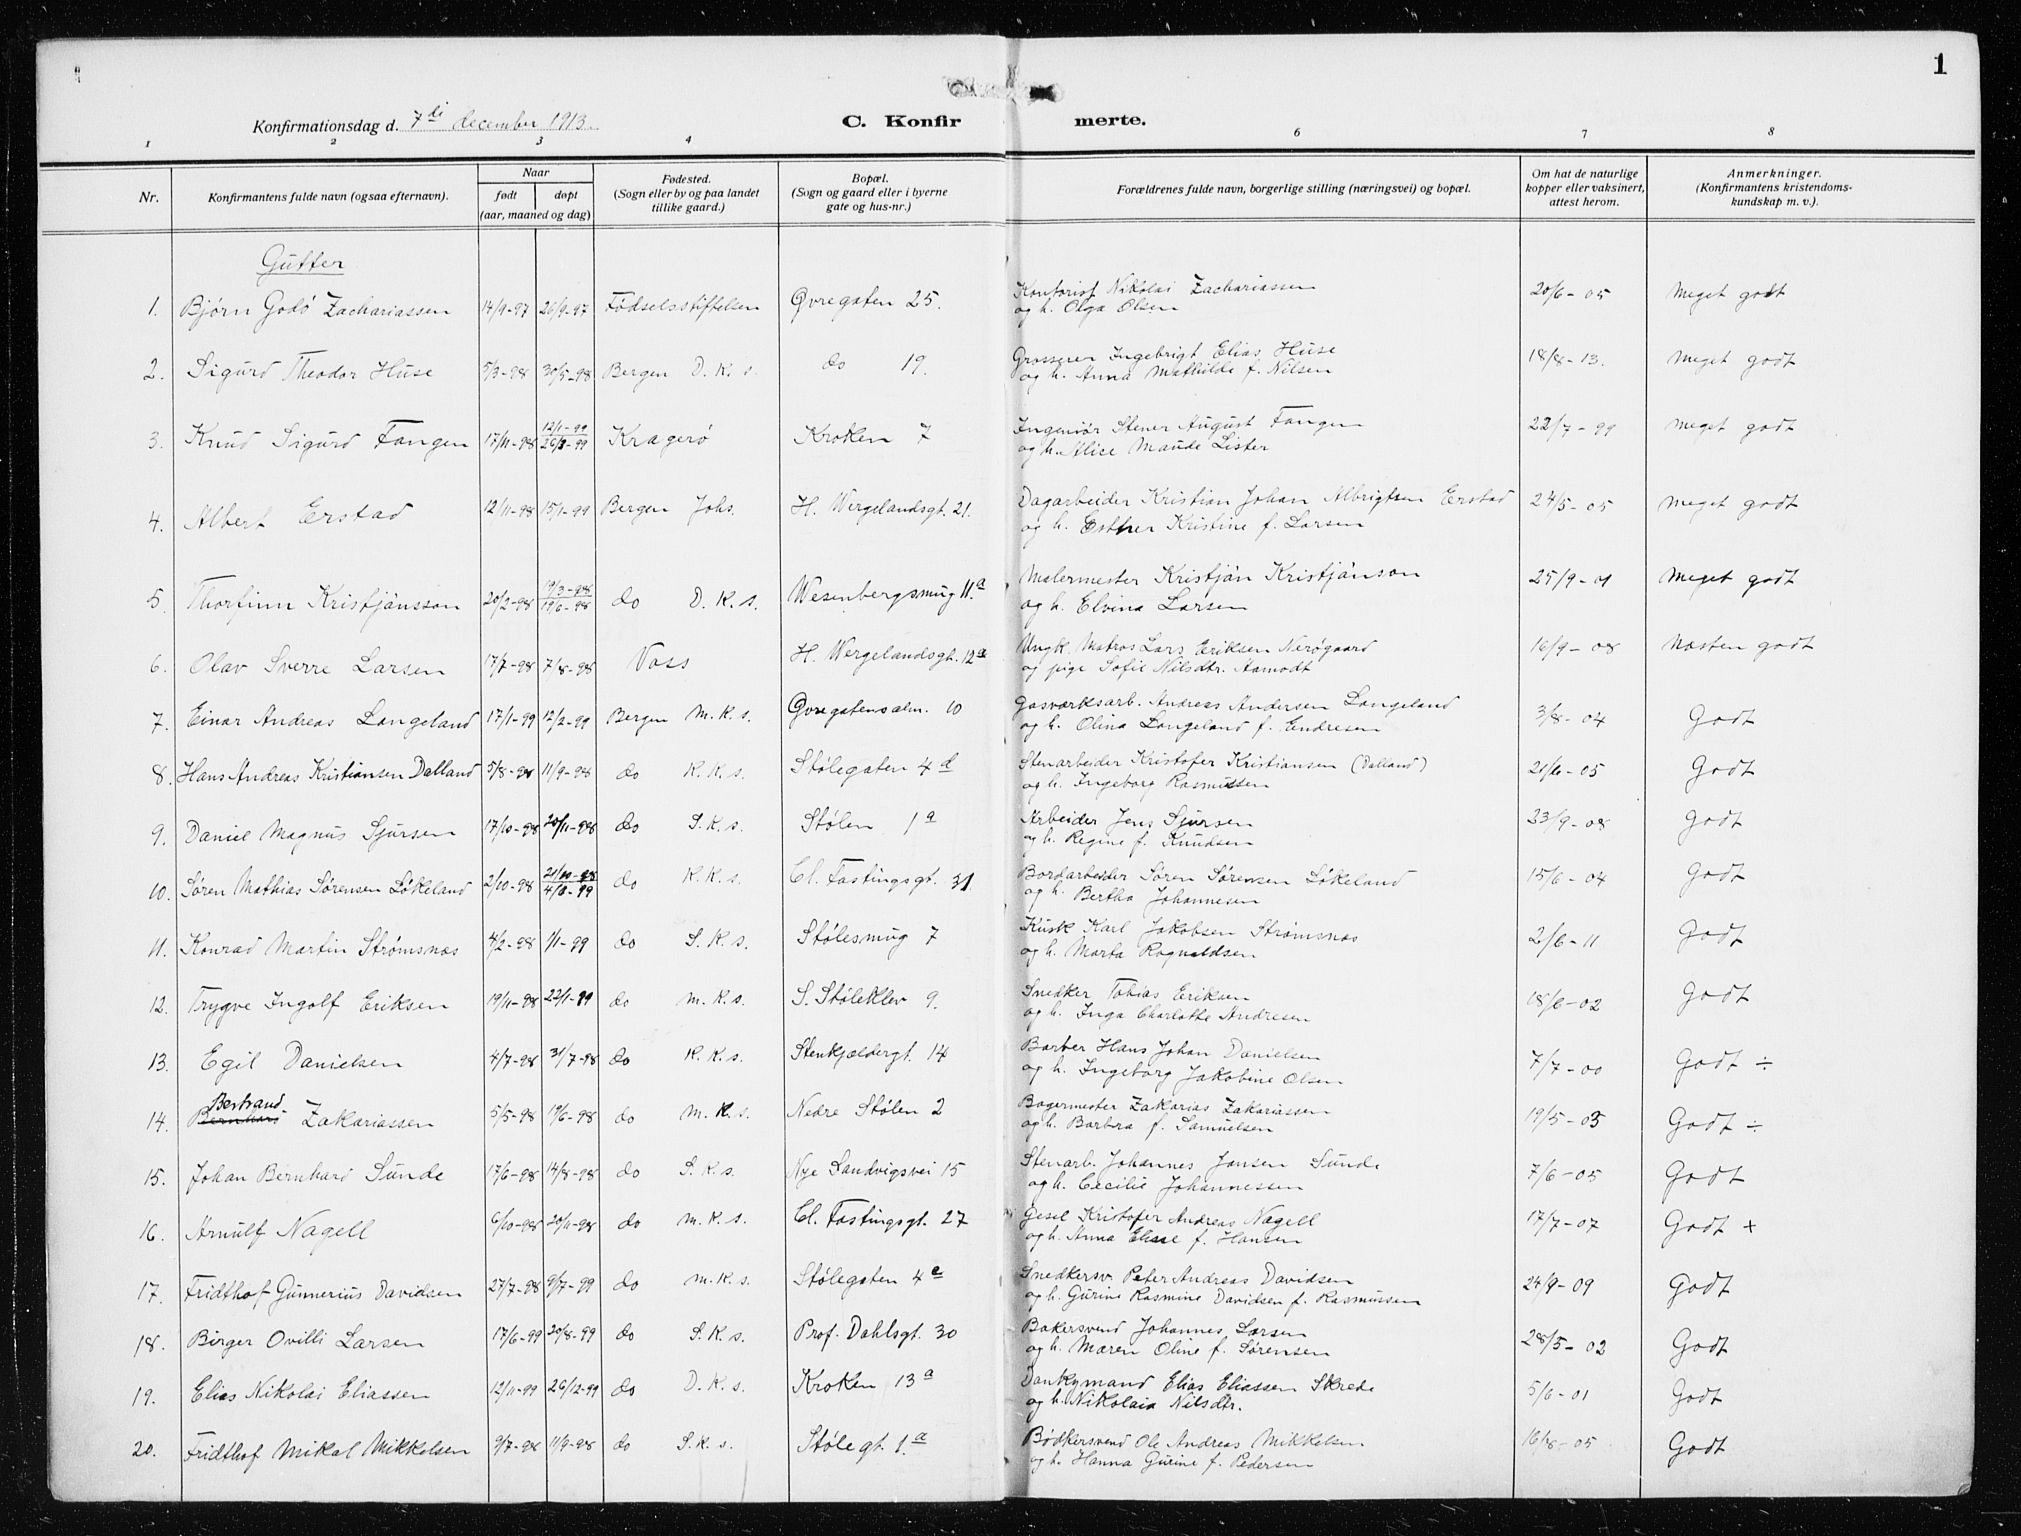 1
Konfirmationsdag d. 7di december 1913.
C. Konfirmerte.
1 2 3 4 6 7 8
Nr. Konfirmantens fulde navn (ogsaa efternavn). Naar født døpt (aar, maaned og dag) Fødested. (Sogn eller by og paa landet tillike gaard.) Bopæl. (Sogn og gaard eller i byerne gate og hus-nr.) Forældrenes fulde navn, borgerlige stilling (næringsvei) og bopæl. Om hat de naturlige kopper eller vaksinert, attest herom. Anmerkninger. (Konfirmantens kristendoms-kundskap m. v.).
Gutter
1. Bjørn Godø Zachariassen 14/9-97 26/9-97 Fødselsstiftelsen Øvregaten 25. Kontorist Nikolai Zachariassen 20/6-05 Meget godt
og h. Olga Olsen
2. Sigurd Theodor Huse 5/3-98 30/5-98 Bergen D. K. s. do 19. Grosserer Ingebrigt Elias Huse 18/8-13. Meget godt
og h. Anna Mathilde f. Nilsen
3. Knud Sigurd Fangen 17/11-98 12/1-99 26/3-99 Kragerø Kroken 7 Ingeniør Stener August Fangen 22/7-99 Meget godt
og h. Alice Maude Lister
4. Albert Erstad 12/11-98 15/1-99 Bergen Johs. H. Wergelandsgt. 21. Dagarbeider Kristian Johan Albrigtsen Erstad 24/5-05 Meget godt
og h. Esther Kristine f. Larsen
5. Thorfinn Kristjánsson 20/2-98 19/3-98 19/6-98 do D. K. s. Wesenbergsmug 11.a Malermester Kristján Kristjánson 25/9-01 Meget godt
og h. Elvina Larsen
6. Olav Sverre Larsen 17/7-98 7/8-98 Voss H. Wergelandsgt. 12a Ungk. Matros Lars Eriksen Nerøgaard 16/9-08 Næsten godt
og pige Sofie Nilsdtr. Aamodt
7. Einar Andreas Langeland 17/1-99 12/2-99 Bergen M. K. s. Øvregatensalm. 10 Gasværksarb. Andreas Andersen Langeland 3/8-04 Godt
og h. Olina Langeland f. Endresen
8. Hans Andreas Kristiansen Dalland 5/8-98 11/9-98 do K. K. s. Stølegaten 4 d Stenarbeider Kristofer Kristiansen (Dalland) 21/6-05 Godt
og h. Ingeborg Rasmussen
9. Daniel Magnus Sjursen 17/10-98 20/11-98 do S. K. s. Stølen 1 a Arbeider Jens Sjursen 23/9-08 Godt
og h. Regine f. Knudsen
10. Søren Mathias Sørensen Løkeland 2/10-98 21/10-98 4/6-99 do K. K. s. Cl. Fastingsgt. 31 Bordarbeider Søren Sørensen Løkeland 15/6-04 Godt
og h. Bertha Johannesen
11. Konrad Martin Strømsnæs 4/2-98 1/1-99 do S. K. s. Stølesmug 7 Kusk Karl Jakobsen Strømsnæs 2/6-11 Godt
og h. Marta Rognaldsen
12. Trygve Ingolf Eriksen 19/11-98 22/1-99 do M. K. s. S. Stølekleven 9. Snedker Tobias Eriksen 18/6-02 Godt
og h. Inga Charlotte Andresen
13. Egil Danielsen 4/7-98 31/7-98 do K. K. s. Stenkjeldergt. 14 Barber Hans Johan Danielsen 7/7-00 Godt ÷
og h. Ingeborg Jakobine Olsen
14. Bernhard Bertrand Zakariassen 5/5-98 19/6-98 do M. K. s. Nedre Stølen 2 Bagermester Zakarias Zakariassen 19/5-03 Godt ÷
og h. Barbra f. Samuelsen
15. Johan Bernhard Sunde 17/6-98 14/8-98 do S. K. s. Nye Sandvigsvei 15 Stenarb. Johannes Jansen Sunde 7/6-05 Godt
og h. Cecilie Johannessen
16. Arnulf Nagell 6/10-98 20/11-98 do M. K. s. Cl. Fastingsgt. 27 Gesel Kristofer Andreas Nagell 17/7-07 Godt +
og h. Anna Elise f. Hansen
17. Fridthof Gunnerius Davidsen 27/7-98 9/7-99 do M. K. s. Stølegaten 4 e Snedkersv. Peter Andreas Davidsen 24/9-09 Godt
og h. Gurine Rasmine Davidsen f. Rasmussen
18. Birger Ovilli Larsen 17/6-99 20/8-99 do S. K. s. Prof. Dahlsgt. 30 Bakersvend Johannes Larsen 28/5-02 Godt
og h. Maren Oline f. Sørensen
19. Elias Nikolai Eliassen 12/11-99 26/12-99 do D. K. s. Kroken 13 a Dankymand Elias Eliassen Skrede 5/6-01 Godt
og h. Nikolaia Nilsdtr.
20. Fridthof Mikal Mikkelsen 9/7-98 11/9-98 do S. K. s. Stølegt. 1. a Bødkersvend Ole Andreas Mikkelsen 16/8-05 Godt
og h. Hanna Gurine f. Pedersen